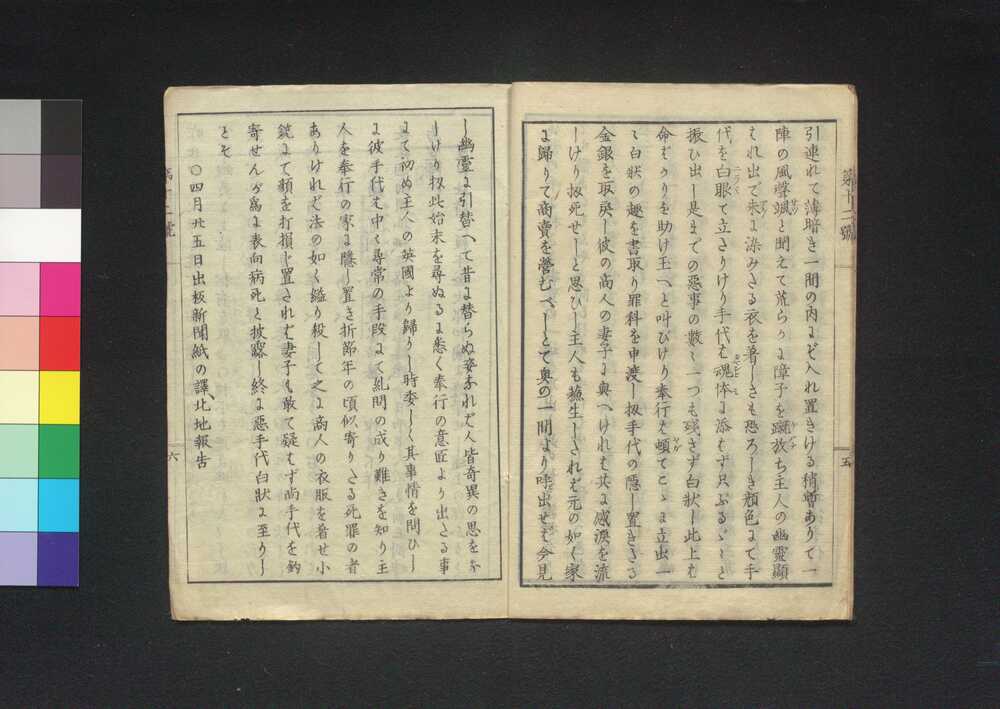 引連れて薄暗き一間の内にぞ入れ置きける稍暫ありて一
陣の風聲颯と聞えて荒らかに障子を蹴放ち主人の幽靈顯
はれ出で朱に染みたる衣を着しさも恐ろしき顏色にて手
代を白眼て立さりけり手代は魂体に添はず只ぶるゝと
振ひ出し是までの惡事の數〻一つも殘さず白状し此上は
命ばかりを助け玉へと叫びけり奉行は頓てこゝに立出一
〻白状の趣を書取り罪科を申渡し扨手代の隱し置きたる
金銀を取戻し彼の商人の妻子に與へけれは共に感涙を流
しけり扨死せしと思ひし主人も蘇生したれは元の如く家
に歸りて商賣を營むべしとて奥の一間より呼出せは今見
第十二號
五
し幽靈に引替へて昔に替らぬ姿なれば人皆奇異の思をな
しけり扨此始末を尋ぬるに悉く奉行の意匠より出たる事
にて初め主人の英國より歸りし時委しく其事情を問ひし
に彼手代は中々尋常の手段にて糺問の成り難きを知り主
人を奉行の家に隱し置き折節年の頃似寄りたる死罪の者
ありければ法の如く縊り殺して之に商人の衣服を着せ小
銃にて頬を打損し置きたれは妻子も敢て疑はず尚手代を釣
寄せんが爲に表向病死と披露し終に惡手代白状に至りし
とそ
〇四月廿五日出板新聞紙の譯、北地報告
第十二號
六